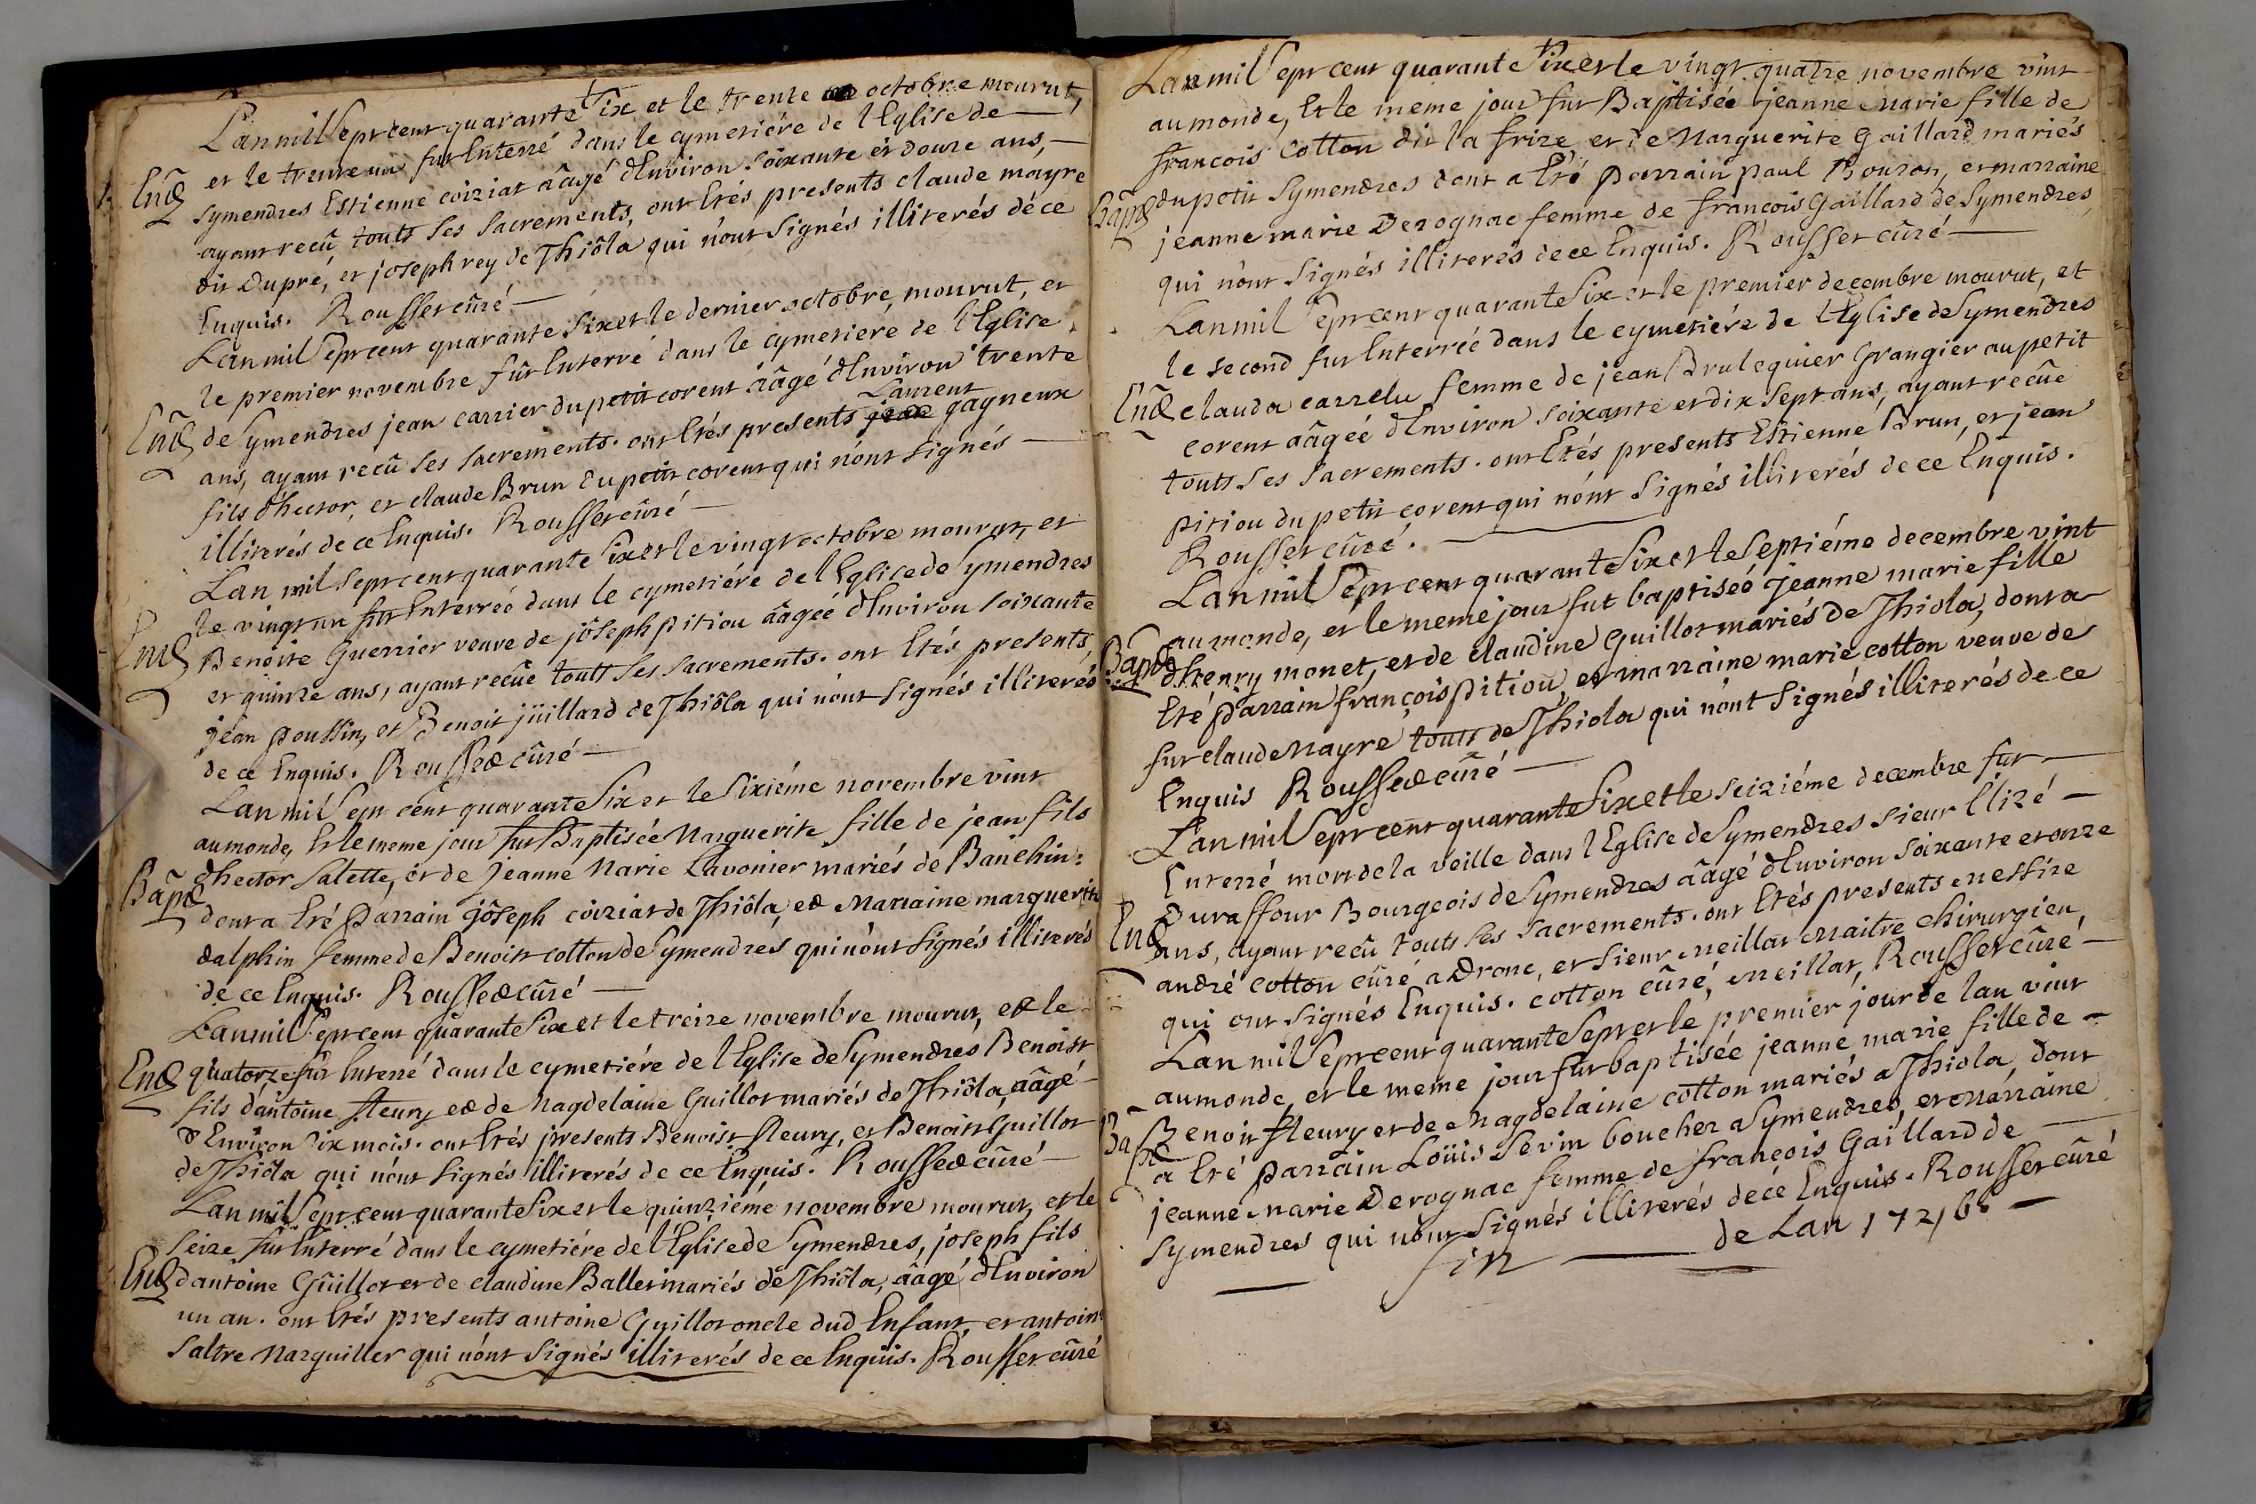 Lan mil Sept cent quarante Six et le trente octobre mourut,
et le trente un fut Enterré dans le cymetiére de l'Eglise de
Ent
Symendres Estienne coiziat ââgé d'Environ soixante et douze ans,
ayant recû touts ses sacrements, ont Etés presents claude mayre
dit Dupré, et joseph rey de Thiôla qui n'ont signés illiterés de ce
Enquis. Rousset cûré
Lan mil Sept cent quarante Six et le dernier octobre, mourut, et
le premier novembre fût Enterré dans le cymetiere de l'Eglise
Ent
de Symendres jean carrier du petit corent ââgé d'Environ trente
ans, ayant recû ses sacrements. ont Etés presents Laurent gagneux
fils d'hector, et claude Brun du petit corent qui n'ont signés
illiterés de ce Enquis. Rousset cûré
Lan mil sept cent quarante Six et le vingt octobre mourut, et
le vingt un fut Enterreé dans le cymetiére de l'Eglice de Symendres
Ent
Benoite Guerrier veuve de jôseph pitiou ââgéé d'Environ soixante
et quinze ans, ayant recûe touts ses sacrements. ont Etés presents,
jean poussin, et Benoit jüillard de Thiôla qui n'ont signés illiterés
de ce Enquis. Rousset cûré
Lan mil Sept cent quarante Six et le Sixiéme novembre vint
au monde, Et le meme jour fut Baptisée Marguerite fille de jean fils
d'hector Salette, et de Jeanne Marie Lavonier mariés de Banchin:
Bap
dont a Eté Parrain jôseph coiziat de Thiôla, et Marraine marguerite
dalphin femme de Benoist cotton de Symendres qui n'ont signés illiterés
de ce Enquis. Rousset cûré
Lan mil Sept cent quarante Six et le treize novembre mourut, et le
Ent
quatorze fut Enterré dans le cymetiére de l'Eglise de Symendres Benoist
fils d'antoine fleury et de Magdelaine Guillot mariés de Thiôla, ââgé
d'Environ Six mois. ont Etés presents Benoist fleury, et Benoist Guillot
de Thiôla qui n'ont signés illiterés de ce Enquis. Rousset cûré
Lan mil Sept cent quarante Six et le quinziéme novembre mourut, et le
seize fut Enterré dans le cymetiére de l'Eglise de Symendres, joseph fils
Ent
d'antoine Guillot et de claudine Ballet mariés de Thiôla, ââgé d'Environ
un an. ont Etés presents antoine Guillot oncle dud Enfant, et antoine
Saltre Marguiller qui n'ont signés illiterés de ce Enquis. Rousset cûré
Lan mil Sept cent quarante Six et le vingt quatre novembre vint
au monde, Et le meme jour fut Baptisée jeanne Marie fille de
francois cotton dit la frize et de Marguerite Gaillard mariés
Bap
du petit Symendres dont a Eté Parrain paul Bouzon, et marraine
jeanne marie Derognac femme de francois Gaillard de Symendres
qui n'ont signés illiterés de ce Enquis. Rousset cûré
Lan mil Sept cent quarante Six et le premier decembre mourut, et
le second fut Enterrée dans le cymetiére de l'Eglise de Symendres
Ent
clauda carrelu femme de jean Drulequier Grangier au petit
corent ââgéé d'Environ soixante et dix sept ans, ayant recûe
touts ses sacrements. ont Etés presents Estienne Brun, et jean
pitiou du petit corent qui n'ont signés illiterés de ce Enquis.
Rousset cûré.
Lan mil Sept cent quarante Six et le Septiéme decembre vint
au monde, et le meme jour fut baptiseé Jeanne marie fille
Bap
d'henry monet, et de claudine Guillot mariés de Thiola, dont a
Eté Parrain françois pitiou, et marraine marie cotton veuve de
fut claude Mayre touts de Thiola qui n'ont signés illiterés de ce
Enquis Rousset cûré
Lan mil Sept cent quarante Six et le seiziéme decembre fut
Enterré mort de la veille dans l'Eglise de Symendres sieur Elizé
Duraffour Bourgeois de Symendres ââgé d'Environ soixante et onze
Ent
ans, ayant recû touts ses sacrements. ont Etés presents messire
andré cotton cûré a Drone, et sieur meillat maitre chirurgien,
qui ont signés Enquis. cotton cûré, meillat, Rousset cûré
Lan mil Sept cent quarante Sept et le premier jour de lan vint
au monde, et le meme jour fut baptisée jeanne marie fille de
Bap
Benoit fleury et de Magdelaine cotton mariés a Thiola, dont
a Eté Parrain Loüis Sevin boucher a Symendres, et Marraine
jeanne Marie Derognac femme de françois Gaillard de
Symendres qui n'ont signés illiterés de ce Enquis. Rousset cûré
fin de Lan 1746